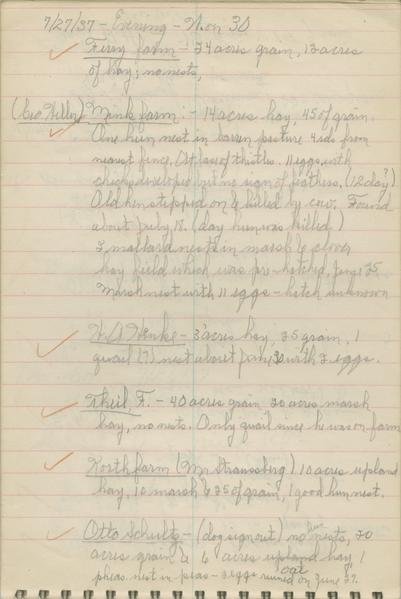 7/27/37 - Evening - Mon 30
Firry farm - 24 acres grain, 12 acres
of hay; no nests,
(Geo. Hiller) Mink farm. - 14 acres hay, 45 of grain.
One hun nest in barren pasture 4 rds from
nearest fence. At base of thistles. 11 eggs, with
chicks developed but no sign of feathers. (12 day?)
Old hen stepped on & killed by cow. Found
about July 18. (day hun was killed)
2 mallard nests in marsh & clover
hay field which was pre-hatched, page 25
Marsh nest with 11 eggs - hatch unknown
Henke - 3 acres hay, 25 grain, 1
quail (?) nest about June 30 with 2 eggs.
Theil, F. - 40 acres grain 20 acres marsh
hay, no nests. Only quail since he was on farm
Korth farm (Mr Straussberg) 10 acres upland
hay, 10 marsh & 25 of grain, 1 good hun nest.
Otto Schultz - (dog sign out) no hun nests, 20
acres grain & 6 acres upland hay, 1
pheas. nest in peas - 3 eggs ruined on June 27.
oat